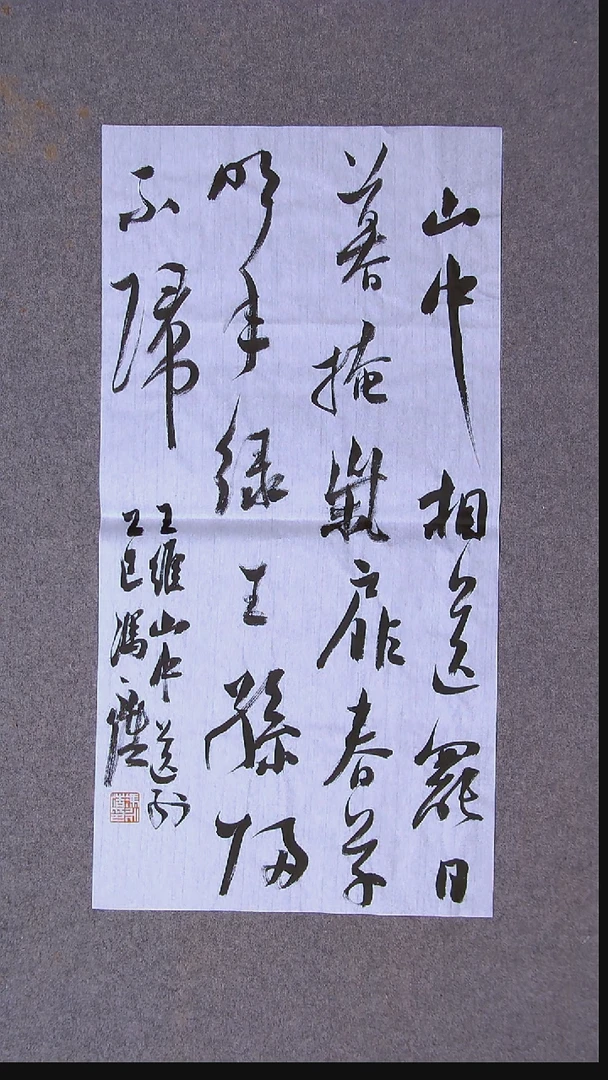 山中相送罷日
暮掩柴扉春草
明年綠王孫歸
不歸
王維山中送別
乙巳馮